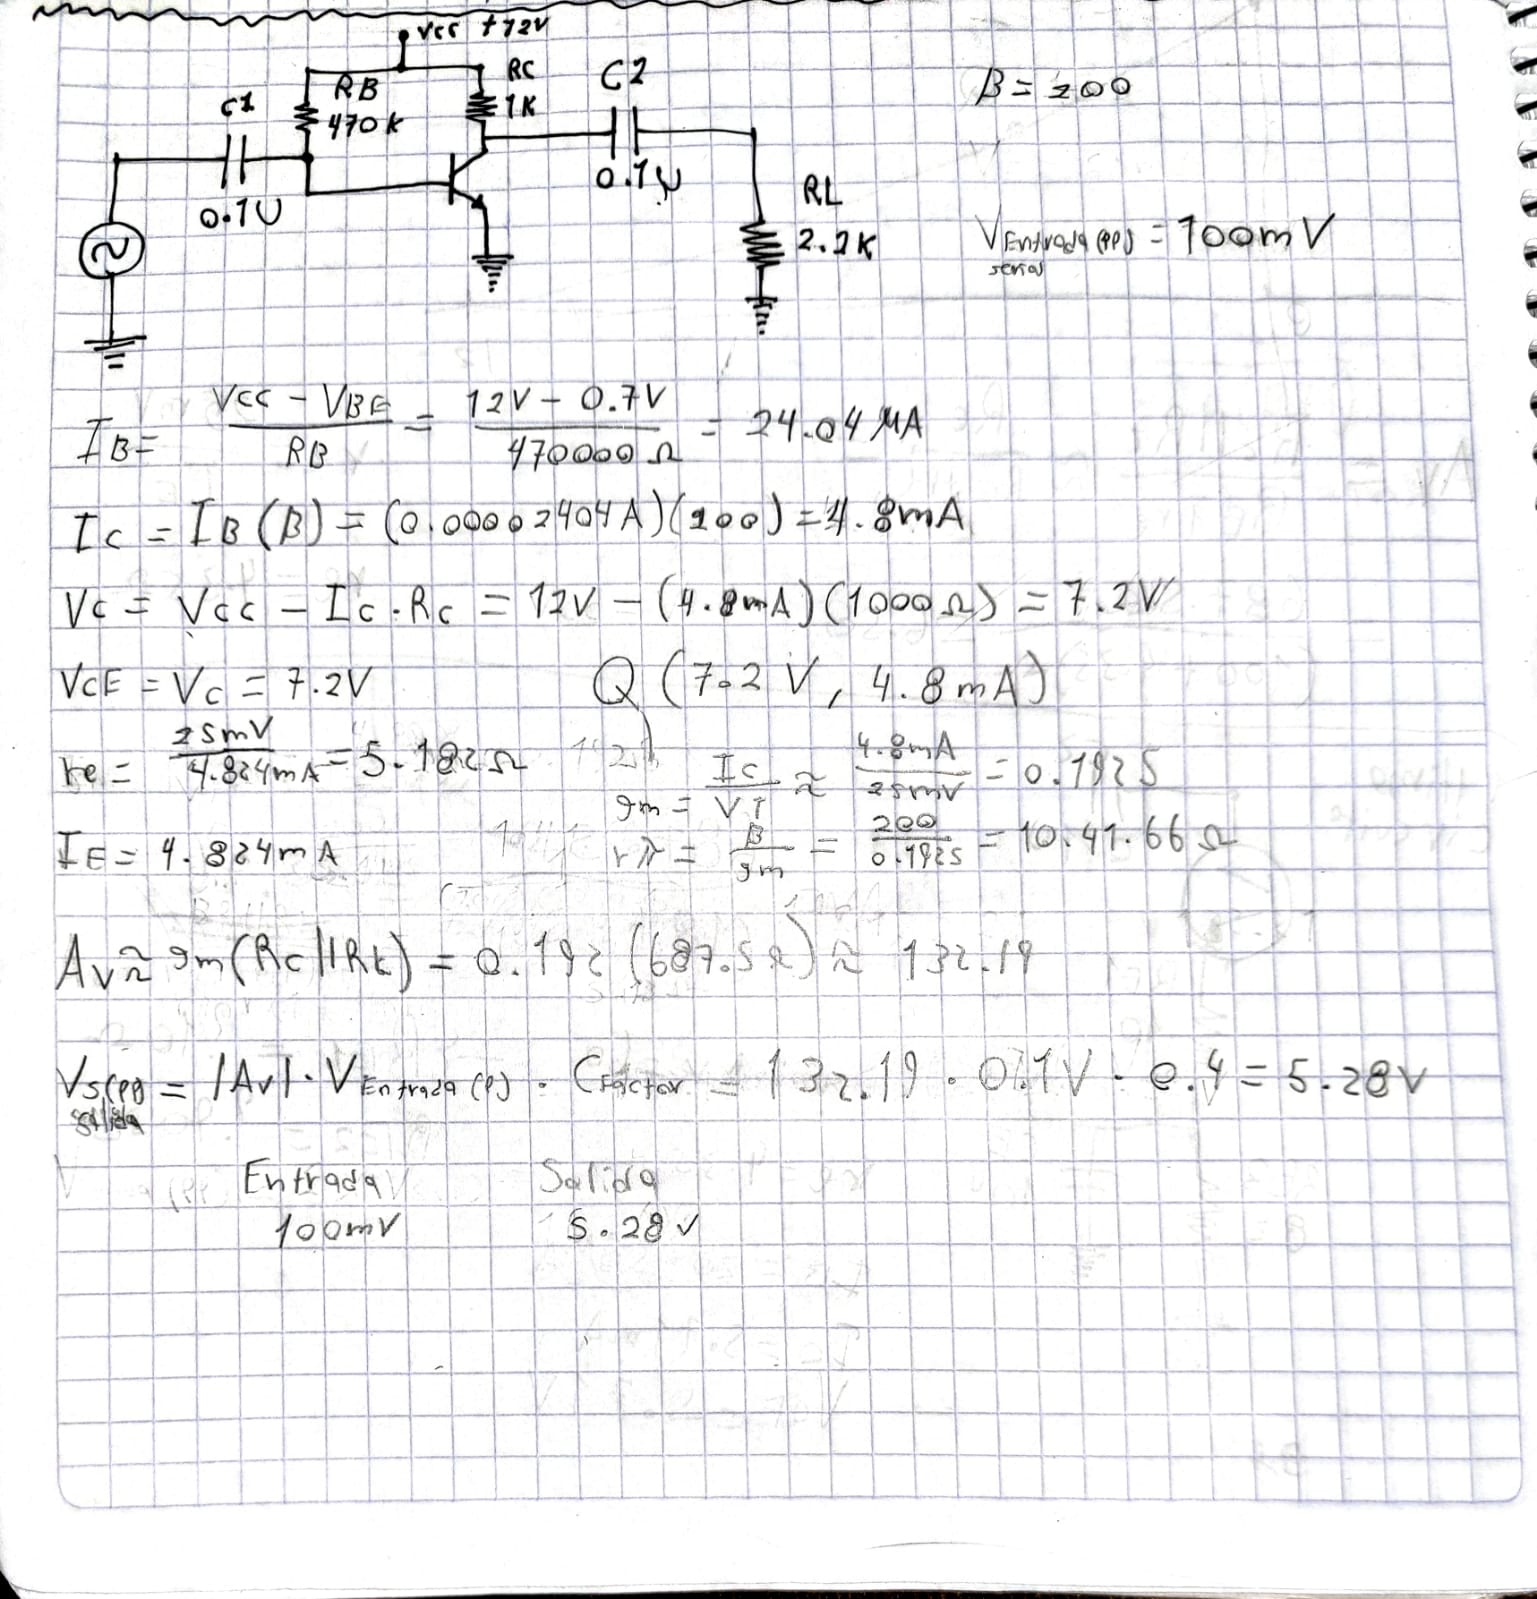 Vcc +12V
RB
470K
RC
1K
C1
0.1U
C2
0.1U
RL
2.2K
β = 200
VEntrada (PP) = 100mV
señal
IB = (VCC - VBE)/RB = (12V - 0.7V)/470000Ω = 24.04 MA
IC = IB(β) = (0.00002404A)(200) = 4.8mA
VC = VCC - IC·RC = 12V - (4.8mA)(1000Ω) = 7.2V
VCE = VC = 7.2V    Q(7.2 V, 4.8mA)
re = 25mV/4.824mA = 5.182Ω    gm = IC/VT ≈ 4.8mA/25mV = 0.192S
IE = 4.824mA    rπ = β/gm = 200/0.192S = 10.41.66 Ω
Av ≈ gm(RC||RL) = 0.192(687.5Ω) ≈ 132.19
VS(PP) = |Av|·VEntrada (P) · CFactor = 132.19 · 0.1V · 0.4 = 5.28V
salida
Entrada    Salida
100mV    5.28V